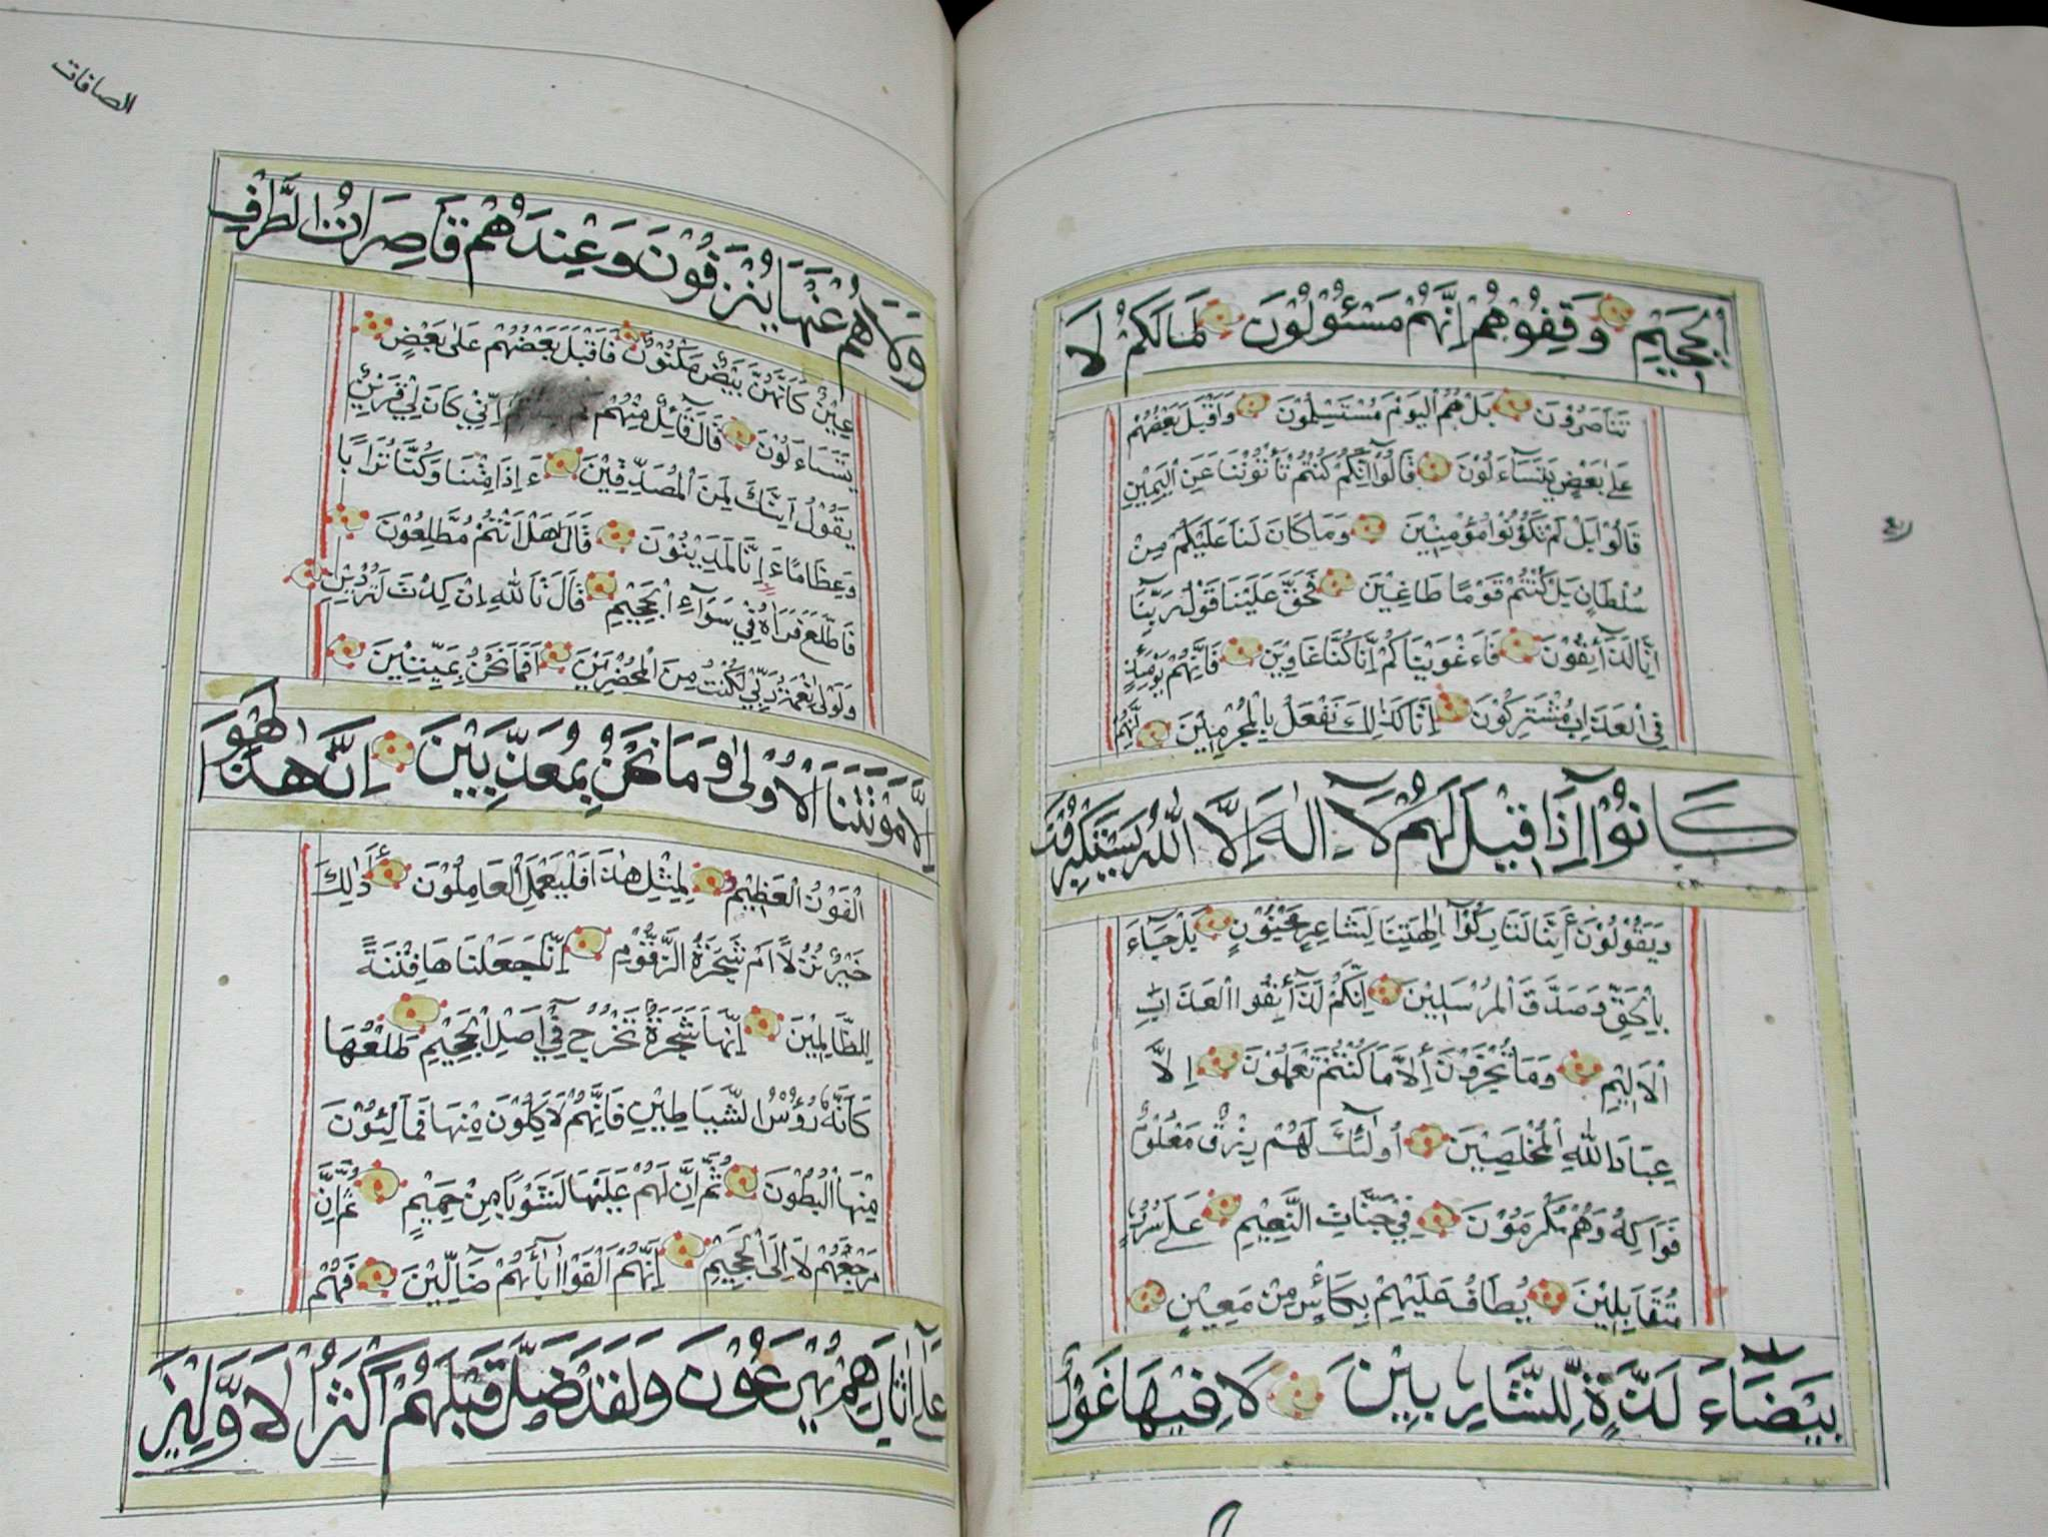 الْجَحِيْمِ وَقِفُوْهُمْ اِنَّهُمْ مَسْئُوْلُوْنَ مَالَكُمْ لَا
تَنَاصَرُوْنَ بَلْ هُمُ الْيَوْمَ مُسْتَسْلِمُوْنَ وَاَقْبَلَ بَعْضُهُمْ
عَلٰى بَعْضٍ يَتَسَآءَلُوْنَ قَالُوْآ اِنَّكُمْ كُنْتُمْ تَأْتُوْنَنَا عَنِ الْيَمِيْنِ
قَالُوْا بَلْ لَمْ تَكُوْنُوْا مُؤْمِنِيْنَ وَمَا كَانَ لَنَا عَلَيْكُمْ مِنْ
سُلْطَانٍ بَلْ كُنْتُمْ قَوْمًا طَاغِيْنَ فَحَقَّ عَلَيْنَا قَوْلُ رَبِّنَا
اِنَّا لَذَآئِقُوْنَ فَاَغْوَيْنَاكُمْ اِنَّا كُنَّا غَاوِيْنَ فَاِنَّهُمْ يَوْمَئِذٍ
فِي الْعَذَابِ مُشْتَرِكُوْنَ اِنَّا كَذٰلِكَ نَفْعَلُ بِالْمُجْرِمِيْنَ اِنَّهُمْ
كَانُوْآ اِذَا قِيْلَ لَهُمْ لَآ اِلٰهَ اِلَّا اللّٰهُ يَسْتَكْبِرُوْنَ
وَيَقُوْلُوْنَ أَئِنَّا لَتَارِكُوْآ اٰلِهَتِنَا لِشَاعِرٍ مَجْنُوْنٍ بَلْ جَآءَ
بِالْحَقِّ وَصَدَّقَ الْمُرْسَلِيْنَ اِنَّكُمْ لَذَآئِقُوا الْعَذَابِ
الْاَلِيْمِ وَمَا تُجْزَوْنَ اِلَّا مَا كُنْتُمْ تَعْمَلُوْنَ اِلَّا
عِبَادَ اللّٰهِ الْمُخْلَصِيْنَ اُولٰٓئِكَ لَهُمْ رِزْقٌ مَعْلُوْمٌ
فَوَاكِهُ وَهُمْ مُكْرَمُوْنَ فِيْ جَنَّاتِ النَّعِيْمِ عَلٰى سُرُرٍ
مُتَقَابِلِيْنَ يُطَافُ عَلَيْهِمْ بِكَأْسٍ مِنْ مَعِيْنٍ
بَيْضَآءَ لَذَّةٍ لِلشَّارِبِيْنَ لَا فِيْهَا غَوْلٌ
الصافات
وَلَا هُمْ عَنْهَا يُنْزَفُوْنَ وَعِنْدَهُمْ قَاصِرَاتُ الطَّرْفِ
عِيْنٌ كَاَنَّهُنَّ بَيْضٌ مَكْنُوْنٌ فَاَقْبَلَ بَعْضُهُمْ عَلٰى بَعْضٍ
يَتَسَاءَلُوْنَ قَالَ قَآئِلٌ مِنْهُمْ اِنِّيْ كَانَ لِيْ قَرِيْنٌ
يَقُوْلُ اَئِنَّكَ لَمِنَ الْمُصَدِّقِيْنَ ءَاِذَا مِتْنَا وَكُنَّا تُرَابًا
وَعِظَامًا ءَاِنَّا لَمَدِيْنُوْنَ قَالَ هَلْ اَنْتُمْ مُطَّلِعُوْنَ
فَاطَّلَعَ فَرَاٰهُ فِيْ سَوَآءِ الْجَحِيْمِ قَالَ تَاللّٰهِ اِنْ كِدْتَ لَتُرْدِيْنِ
وَلَوْلَا نِعْمَةُ رَبِّيْ لَكُنْتُ مِنَ الْمُحْضَرِيْنَ اَفَمَا نَحْنُ بِمَيِّتِيْنَ
اِلَّا مَوْتَتَنَا الْاُوْلٰى وَمَا نَحْنُ بِمُعَذَّبِيْنَ اِنَّ هٰذَا لَهُوَ
الْفَوْزُ الْعَظِيْمُ لِمِثْلِ هٰذَا فَلْيَعْمَلِ الْعَامِلُوْنَ أَذٰلِكَ
خَيْرٌ نُزُلًا اَمْ شَجَرَةُ الزَّقُّوْمِ اِنَّا جَعَلْنَاهَا فِتْنَةً
لِلظَّالِمِيْنَ اِنَّهَا شَجَرَةٌ تَخْرُجُ فِيْٓ اَصْلِ الْجَحِيْمِ طَلْعُهَا
كَاَنَّهُ رُؤُسُ الشَّيَاطِيْنِ فَاِنَّهُمْ لَاٰكِلُوْنَ مِنْهَا فَمَالِئُوْنَ
مِنْهَا الْبُطُوْنَ ثُمَّ اِنَّ لَهُمْ عَلَيْهَا لَشَوْبًا مِنْ حَمِيْمٍ ثُمَّ اِنَّ
مَرْجِعَهُمْ لَاِلَى الْجَحِيْمِ اِنَّهُمْ اَلْفَوْا اٰبَآءَهُمْ ضَآلِّيْنَ فَهُمْ
عَلٰٓى اٰثَارِهِمْ يُهْرَعُوْنَ وَلَقَدْ ضَلَّ قَبْلَهُمْ اَكْثَرُ الْاَوَّلِيْنَ